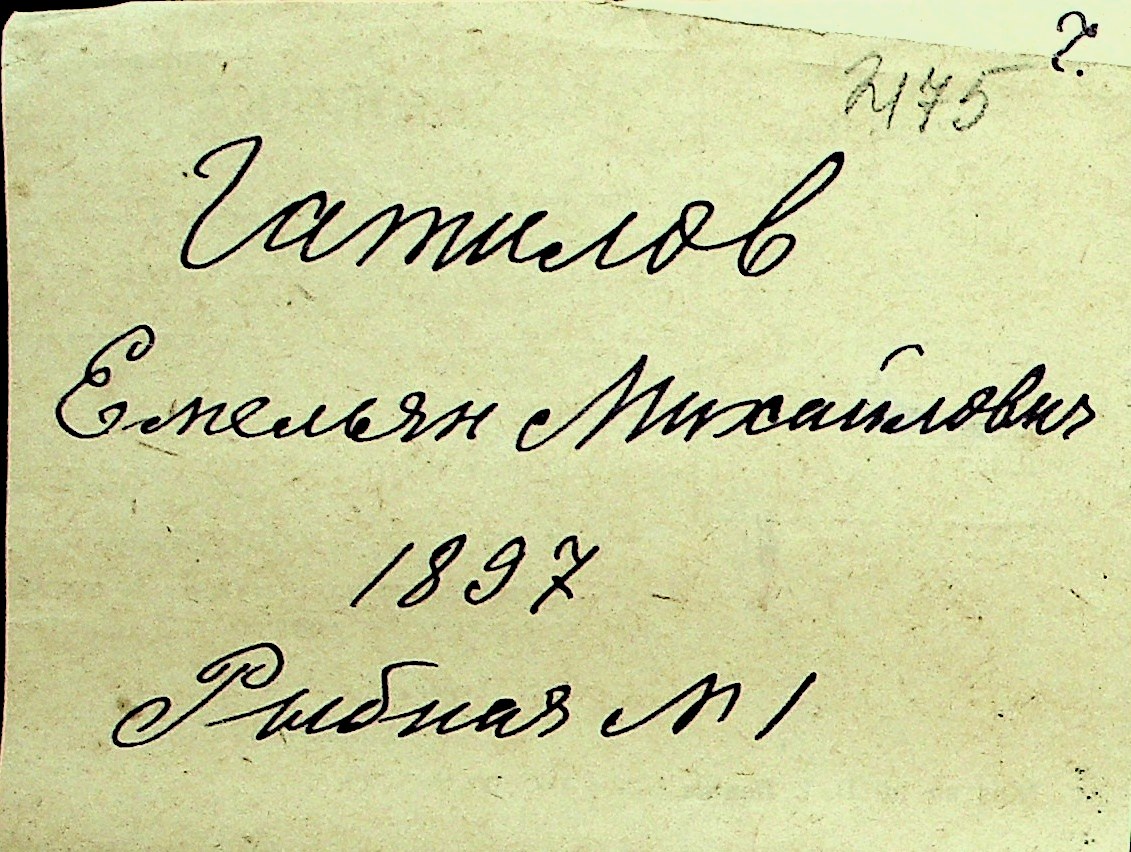 Г.
2175
Гатилов
Емельян Михайлович
1897
Рыбная № 1